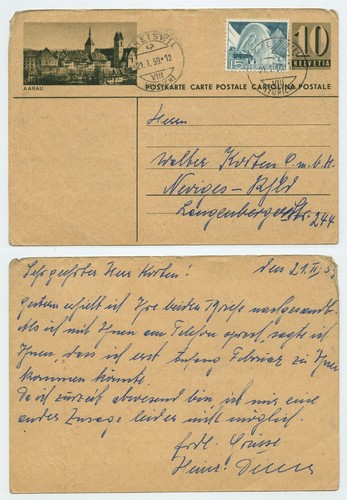 AARAU
ETSWIL
21.I.59-12
VIII
POSTKARTE CARTE POSTALE CARTOLINA POSTALE
15
10
HELVETIA
Herrn
Walter Korten G.m.b.H.
Neviges - Rhld
Langenberger Str. 244
Sehr geehrter Herr Korten! den 21.
Gestern erhielt ich Ihre beiden Briefe nachgesandt.
Als ich mit Ihnen am Telefon sprach, sagte ich
Ihnen, dass ich erst Anfang Februar zu Ihnen
kommen könnte.
Da ich zurzeit abwesend bin ist mir eine
andere Zusage leider nicht möglich.
Frdl. Grüsse
Heinr.